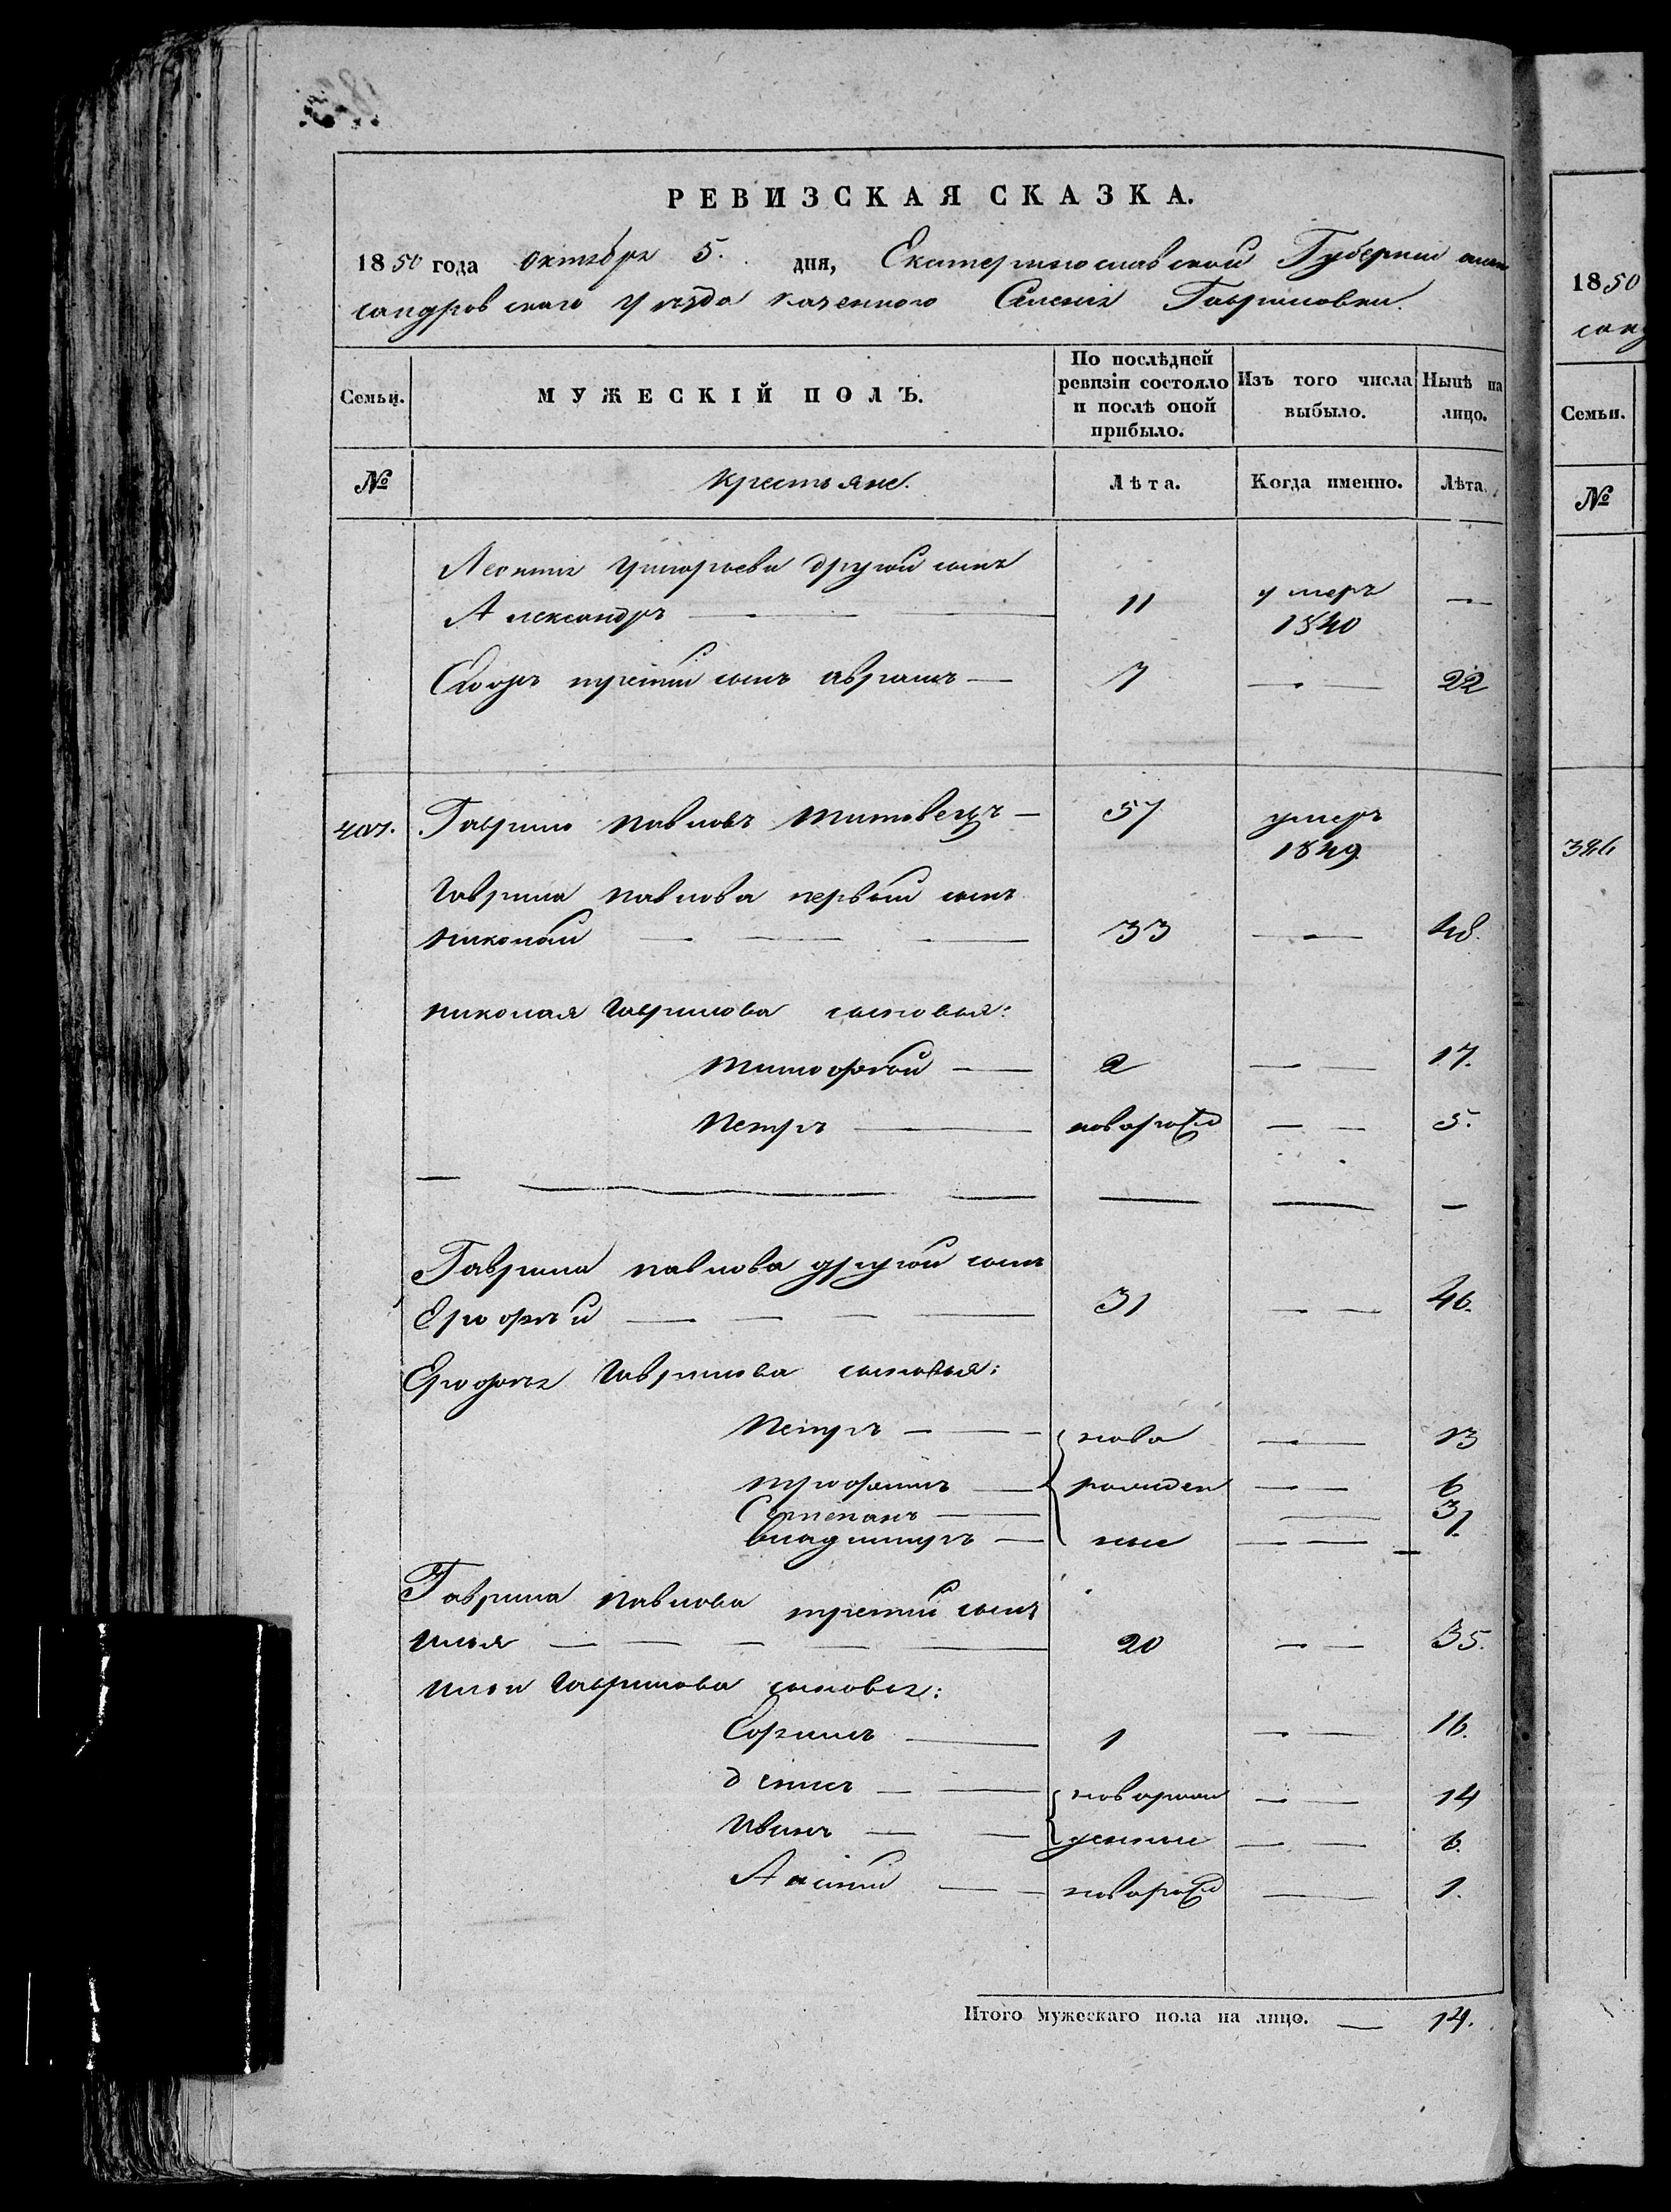 РЕВИЗСКАЯ СКАЗКА.
1850 года октября 5. дня, Екатеринославской Губернии алек
сандровскаго уѣзда казеннаго Селенія Гавриловки.
Семьи. МУЖЕСКІЙ ПОЛЪ. По послѣдней ревизіи состояло и послѣ оной прибыло. Изъ того числа выбыло. Нынѣ на лицо.
№ крестьяне. Лѣта. Когда именно. Лѣта.
Леонтія Григорьева другой сынъ
Александръ — 11 умеръ 1840 —
третій сынъ авраамъ — 7 — 22
Гаврило павловъ Титовецъ — 57 умеръ 1849
Гаврила павлова первый сынъ
николай — 33 — 48.
николая Гаврилова сыновья:
тимофей — 2 — 17.
Петръ — новорожд — 5.
Гаврила павлова другой сынъ
Ерофѣй — 31 — 46.
Ерофѣя Гаврилова сыновья:
Петръ — ново — 13
трофимъ — рожден — 6
Степанъ — — 3
владимиръ — ные — 1
Гаврила павлова третій сынъ
илья — 20 — 35.
ильи Гаврилова сыновья:
Ефимъ — 1 — 16.
денисъ — новорож — 14
иванъ — денные — 6.
— новорожд — 1.
Итого мужескаго пола на лицо. — 14.
1850
санд
Семьи.
№